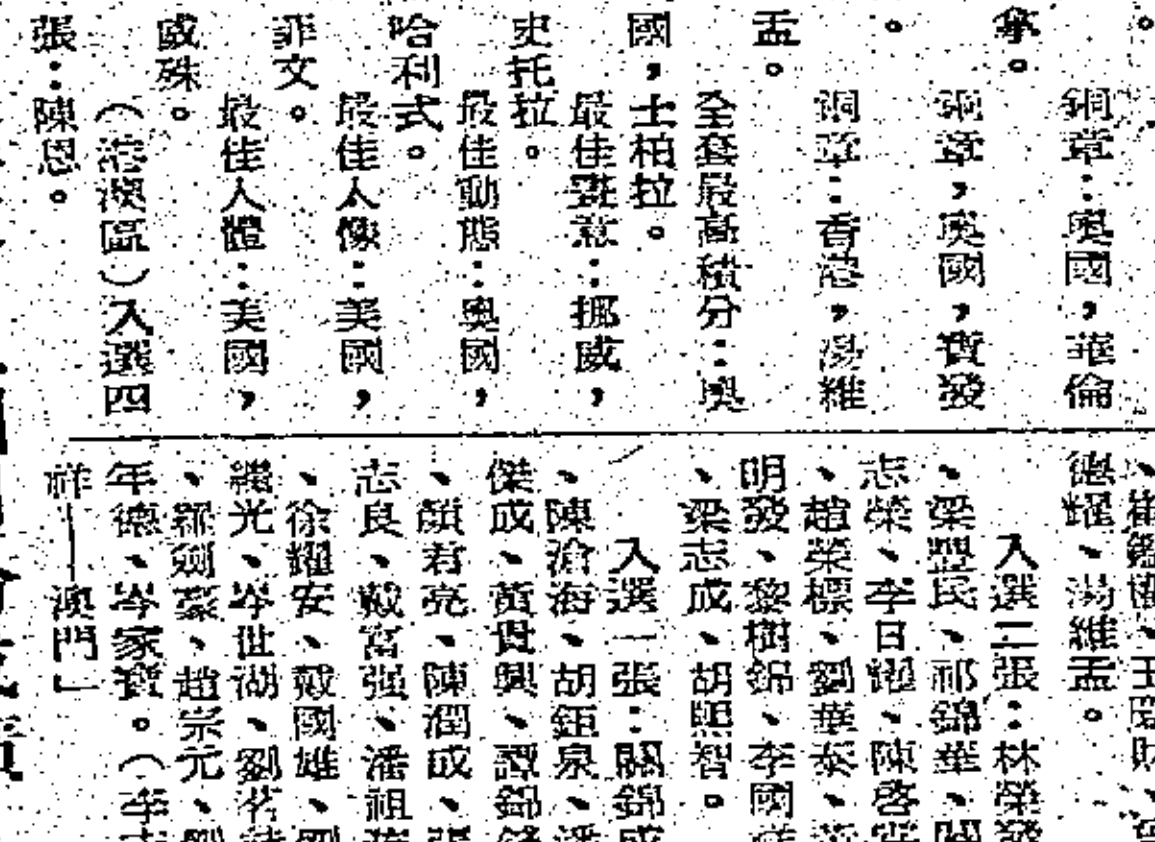 。
銅章：奧國，華倫
拿。
銅章，奧國，寶發
。
銅章：香港，湯維
孟。
全套最高積分：奧
國，士柏拉。
最佳要意：挪威，
史托拉。
最佳動態：奧國，
哈利式。
最佳人像：美國，
菲文。
最佳人體：美國，
殊。
（港澳區）入選四
張：陳恩。
、王
德耀、湯維孟。
入選二張：林榮發
、梁豐民、祁錦華、關
志榮、李日、陳啓
、趙榮標、劉華泰、黃
明發、黎樹錦、李國
、梁志成、胡熙智。
入選一張：關錦成
、陳滄海、胡鉅泉、潘
傑成、黃貴興、譚錦
、顏君亮、陳潤成、張
志良、戴富强、潘祖
、徐耀安、戴國雄、劉
繼光、岑世湖、劉
、羅劍豪、趙宗元、劉
年德、岑家寶。（李
祥——澳門」